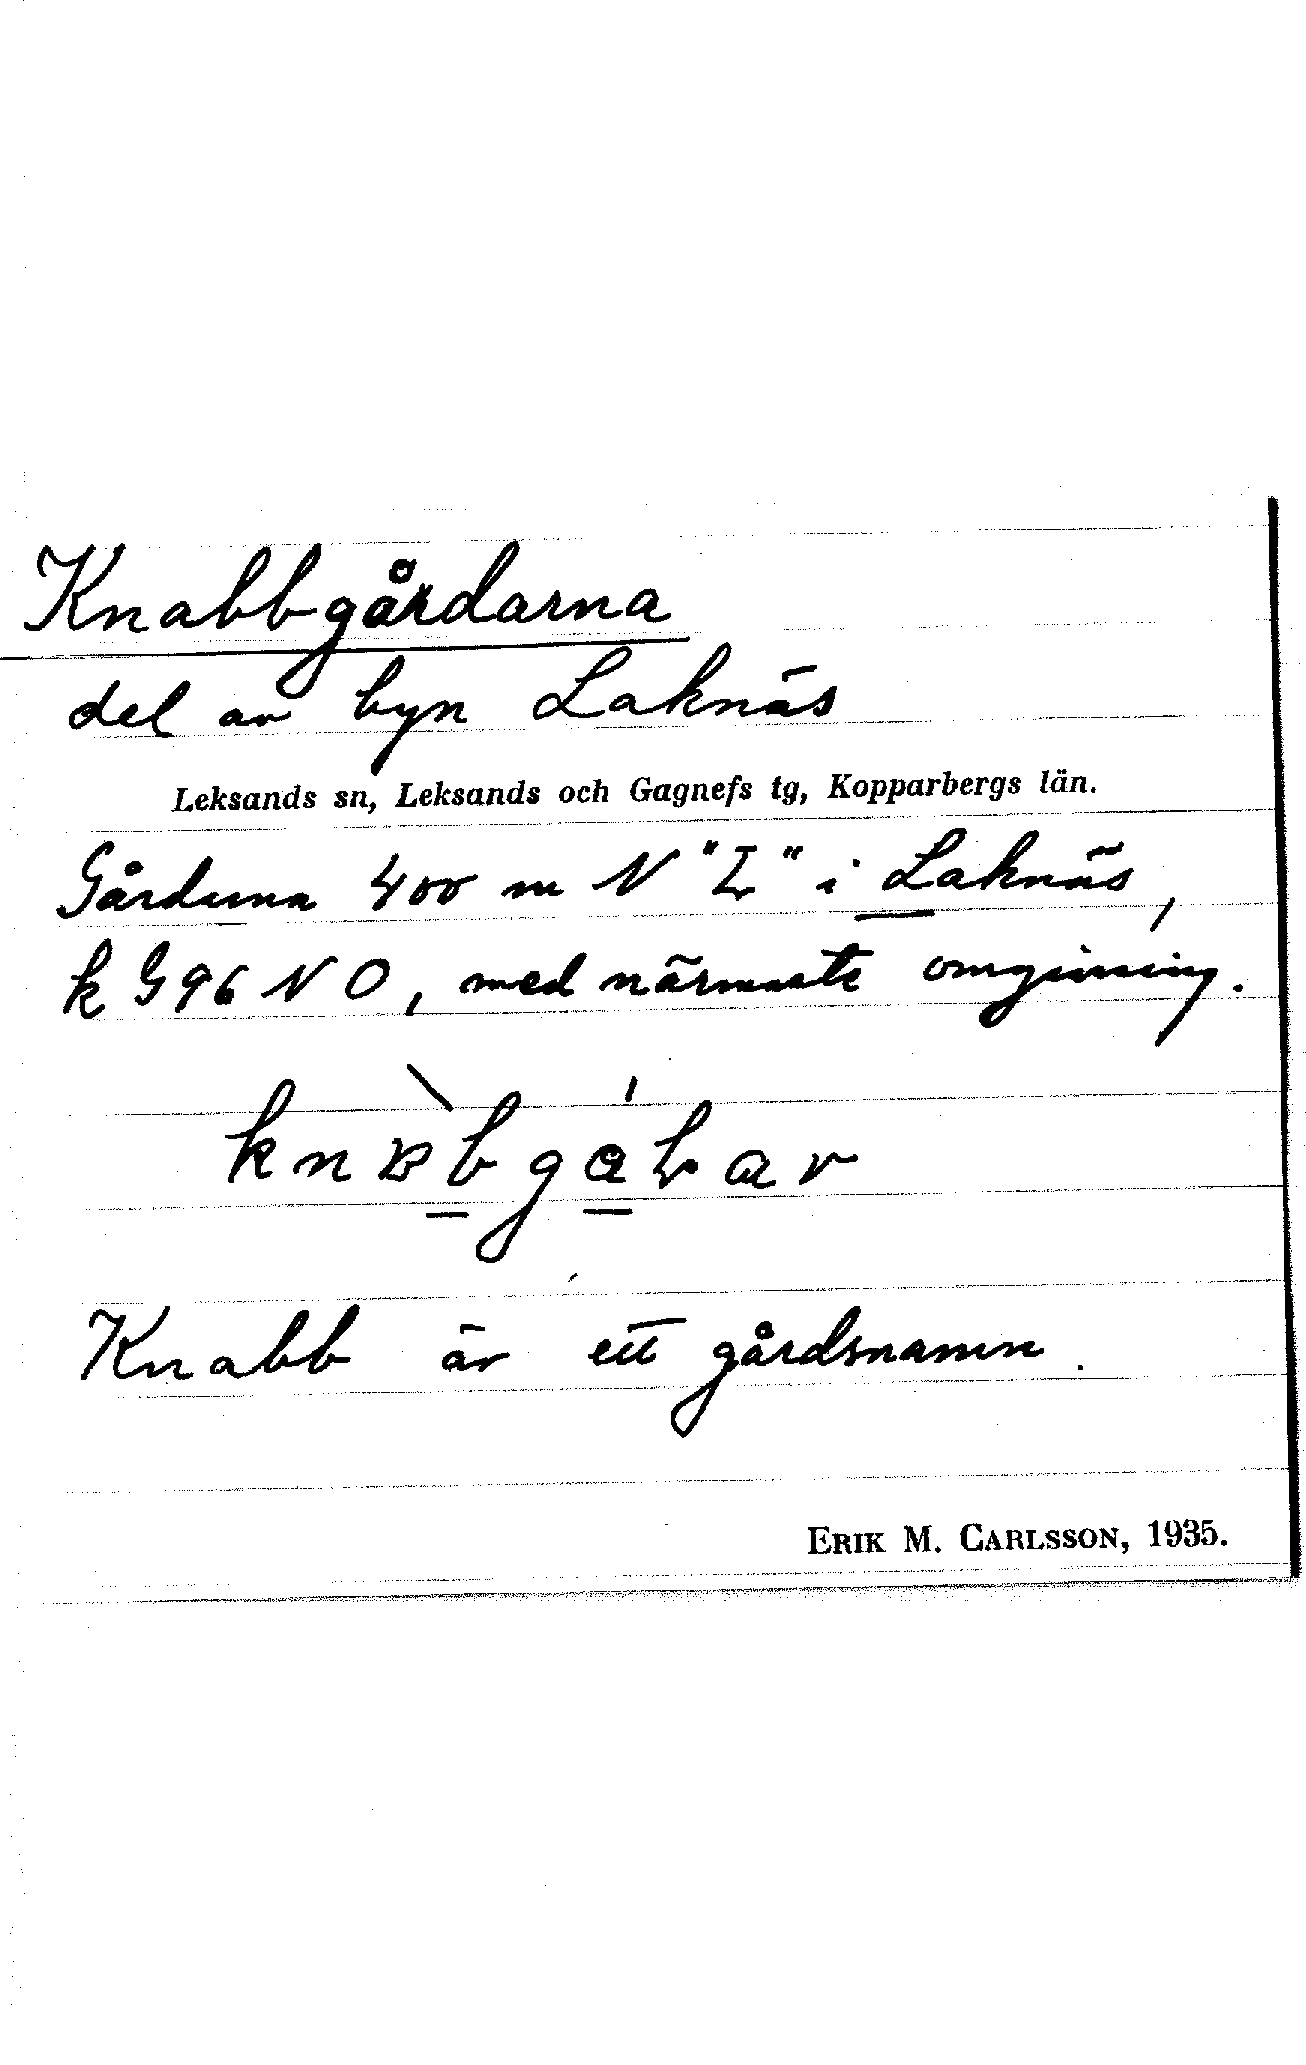 Knabbgårdarna
del av byn Laknäs
Leksands sn, Leksands och Gagnefs tg, Kopparbergs län.
Gårdarna 400 m N "L" i Laknäs,
k G 96 NO, med närmaste omgivning.
Knabb är ett gårdsnamn.
ERIK M. CARLSSON, 1935.